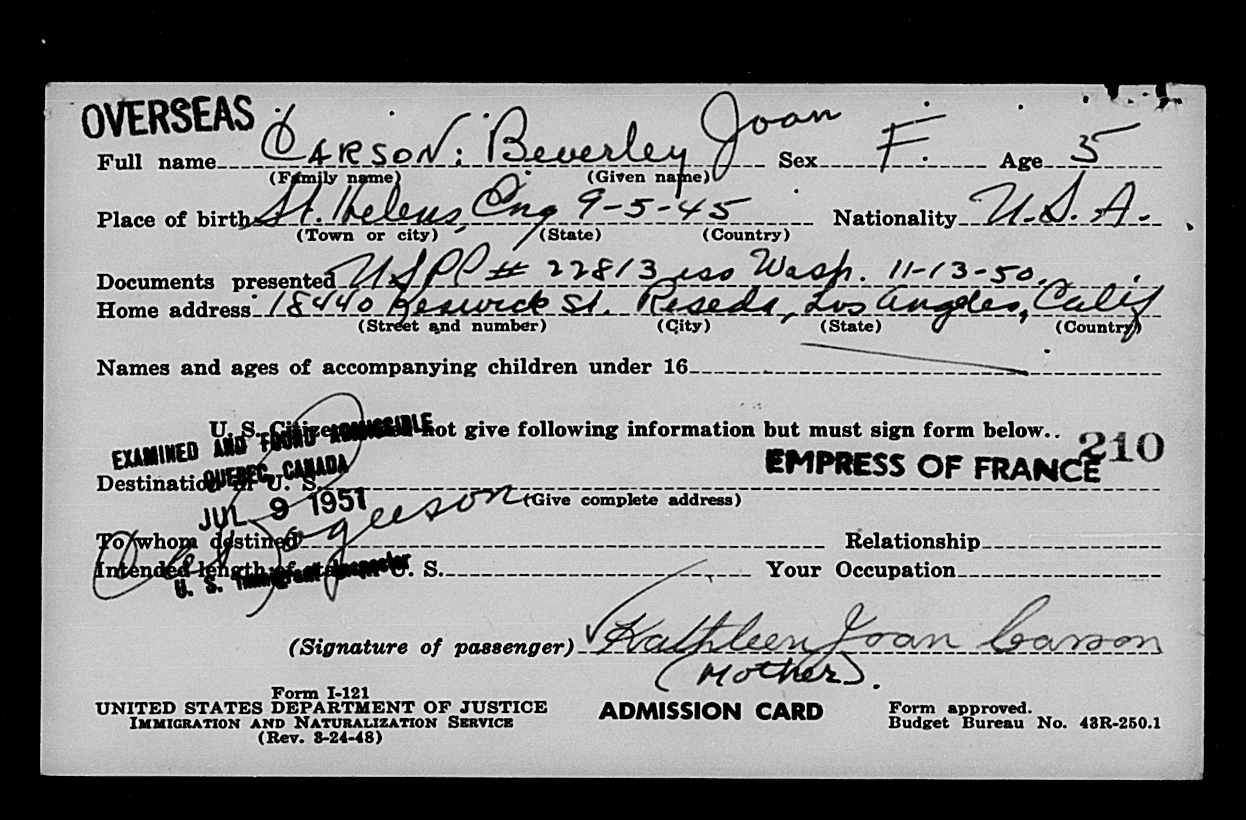 OVERSEAS
Full name CARSON: Beverley Joan Sex F. Age 5
(Family name) (Given name)
Place of birth St. Helens, Eng 9-5-45 Nationality U.S.A.
(Town or city) (State) (Country)
Documents presented USPP # 22813 iss Wash. 11-13-50.
Home address 18440 Keswick St. Reseda, Los Angeles, Calif
(Street and number) (City) (State) (Country)
Names and ages of accompanying children under 16
U. S. Citizens need not give following information but must sign form below..
EXAMINED AND FOUND ADMISSIBLE
210
EMPRESS OF FRANCE
QUEBEC, CANADA
Destination in U. S.
(Give complete address)
JUL 9 1951
To whom destined Relationship
Intended length of stay in U. S. Your Occupation
U. S. Immigrant Inspector
(Signature of passenger) Kathleen Joan Carson
(Mother).
Form I-121
UNITED STATES DEPARTMENT OF JUSTICE
IMMIGRATION AND NATURALIZATION SERVICE
(Rev. 3-24-48)
ADMISSION CARD
Form approved.
Budget Bureau No. 43R-250.1